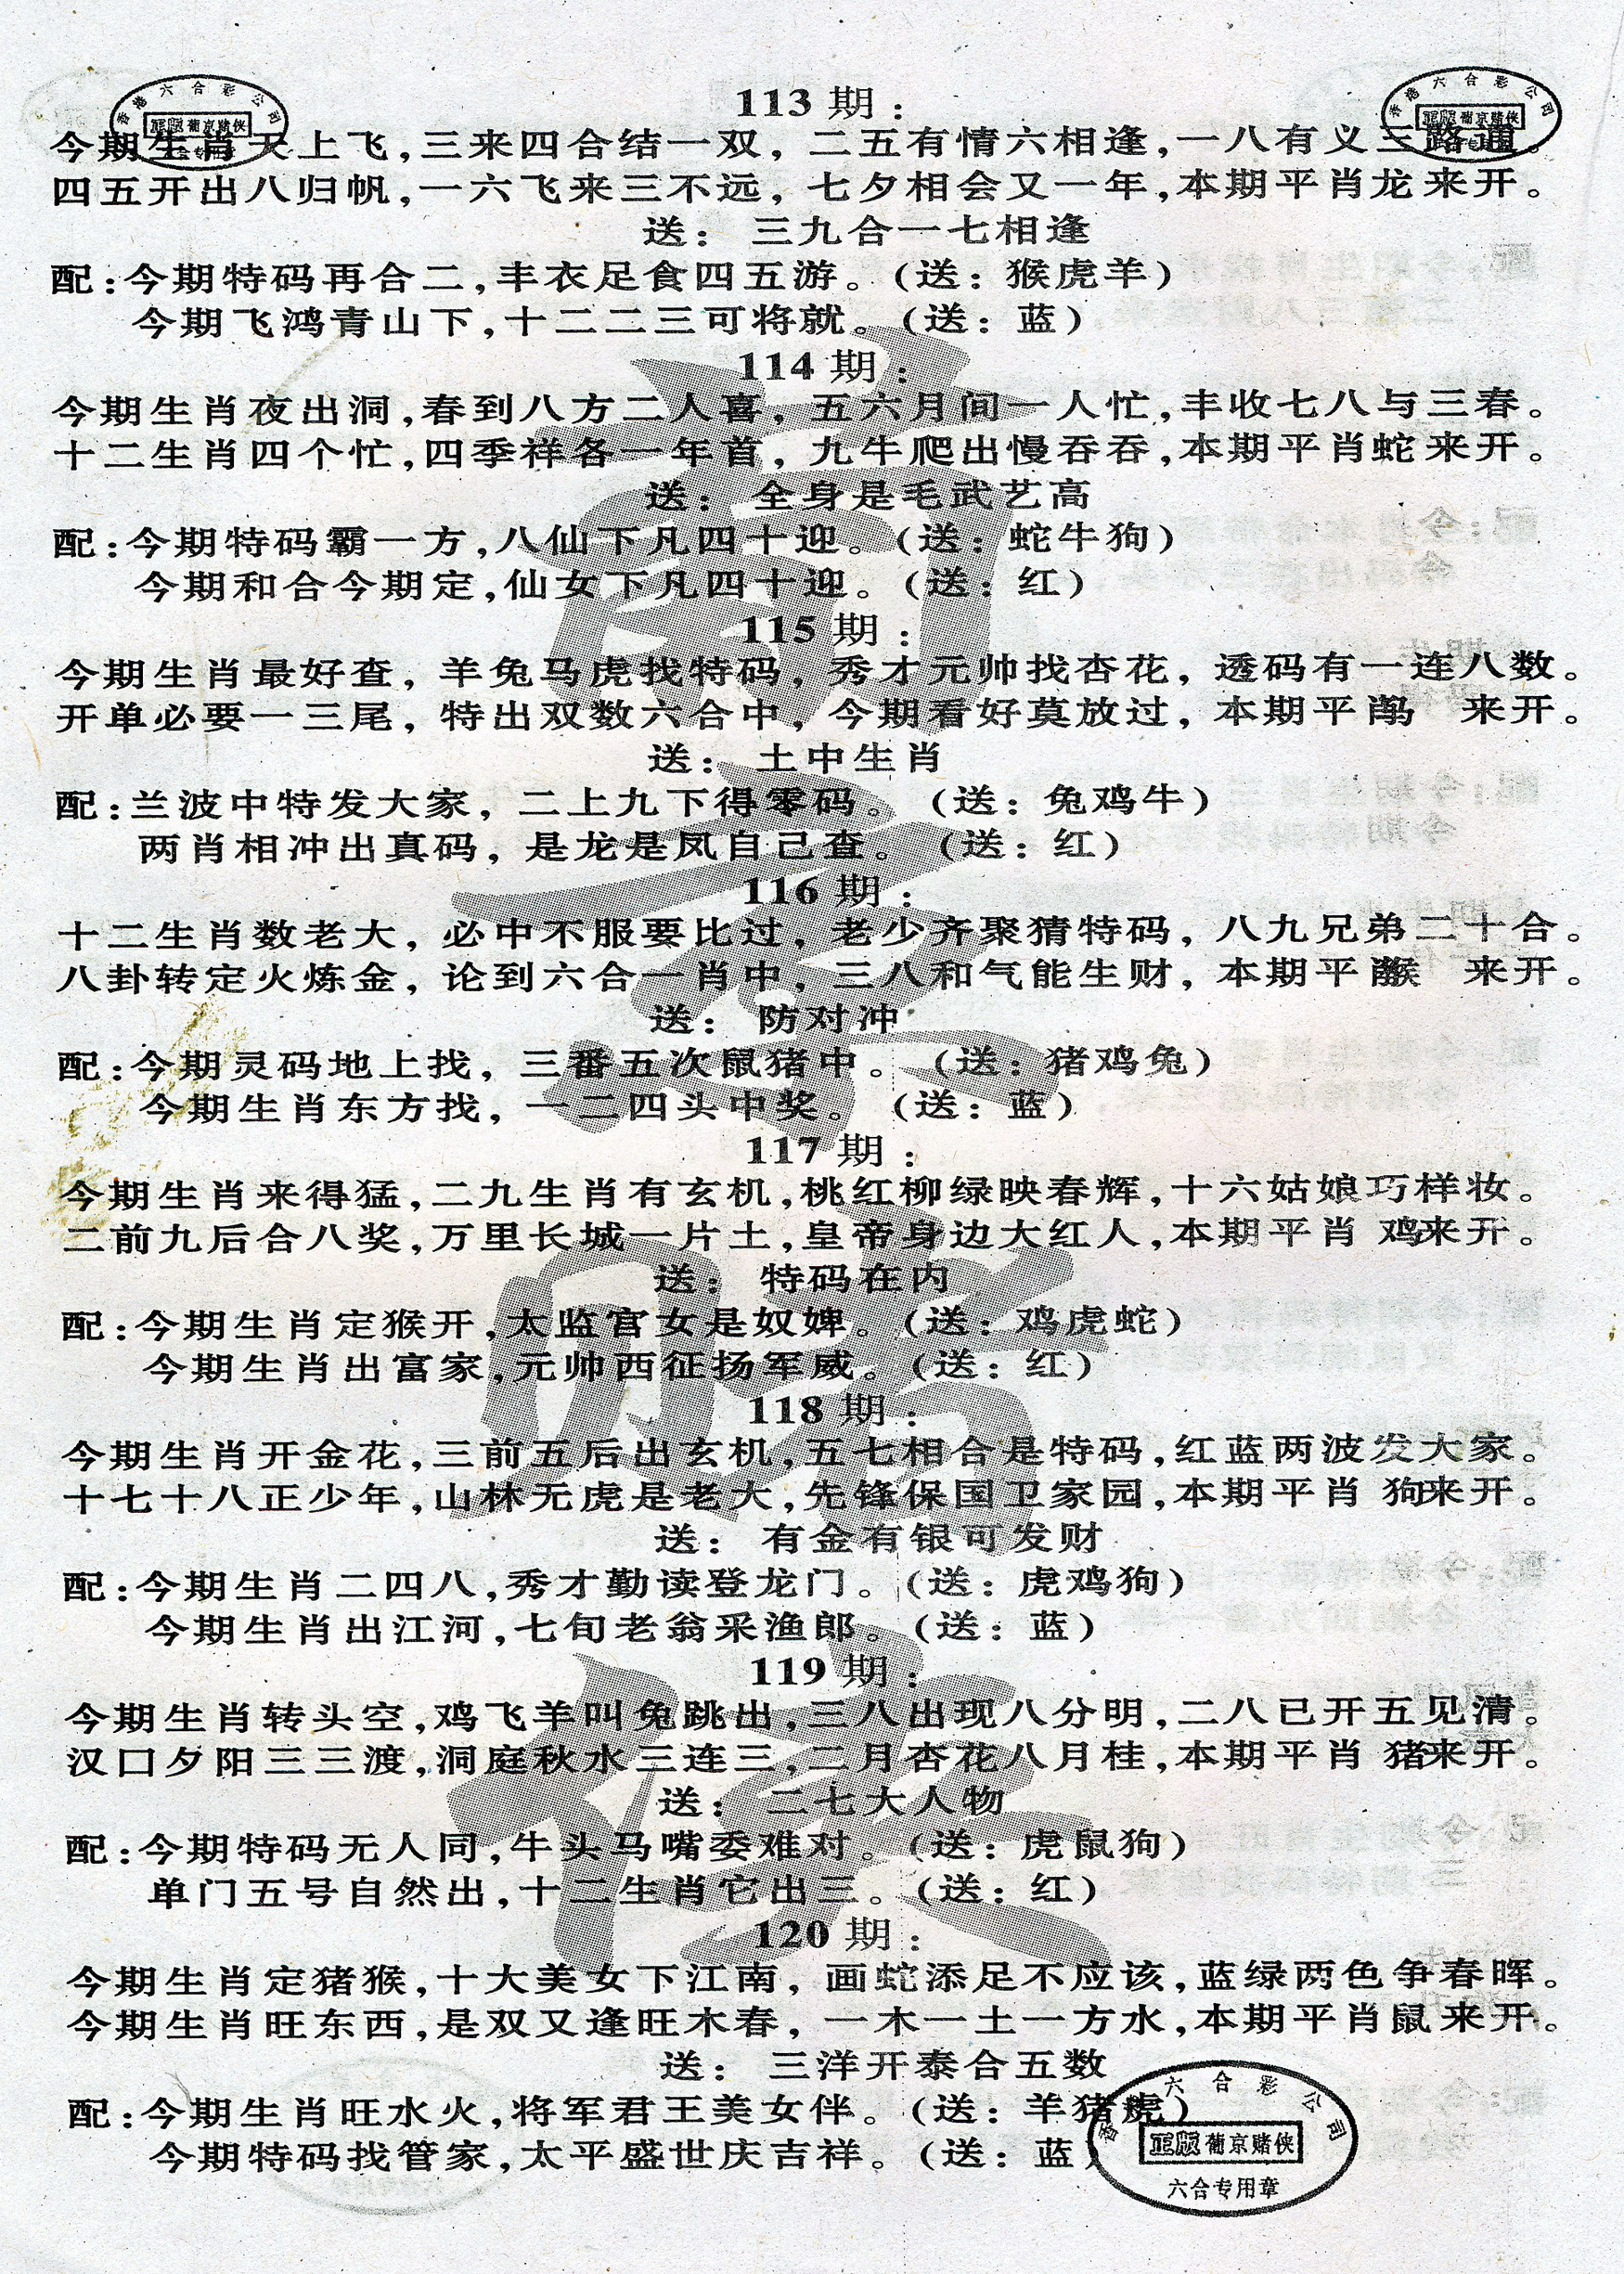 香港六合彩公司
正版 葡京赌侠
香港六合彩公司
正版 葡京赌侠
113 期：
今期生肖天上飞，三来四合结一双，二五有情六相逢，一八有义三路通。
四五开出八归帆，一六飞来三不远，七夕相会又一年，本期平肖龙来开。
送：三九合一七相逢
配：今期特码再合二，丰衣足食四五游。（送：猴虎羊）
今期飞鸿青山下，十二二三可将就。（送：蓝）
114 期：
今期生肖夜出洞，春到八方二人喜，五六月间一人忙，丰收七八与三春。
十二生肖四个忙，四季祥各一年首，九牛爬出慢吞吞，本期平肖蛇来开。
送：全身是毛武艺高
配：今期特码霸一方，八仙下凡四十迎。（送：蛇牛狗）
今期和合今期定，仙女下凡四十迎。（送：红）
115 期：
今期生肖最好查，羊兔马虎找特码，秀才元帅找杏花，透码有一连八数。
开单必要一三尾，特出双数六合中，今期看好莫放过，本期平肖马 来开。
送：土中生肖
配：兰波中特发大家，二上九下得零码。（送：兔鸡牛）
两肖相冲出真码，是龙是凤自己查。（送：红）
116 期：
十二生肖数老大，必中不服要比过，老少齐聚猜特码，八九兄弟二十合。
八卦转定火炼金，论到六合一肖中，三八和气能生财，本期平肖猴 来开。
送：防对冲
配：今期灵码地上找，三番五次鼠猪中。（送：猪鸡兔）
今期生肖东方找，一二四头中奖。（送：蓝）
117 期：
今期生肖来得猛，二九生肖有玄机，桃红柳绿映春辉，十六姑娘巧样妆。
二前九后合八奖，万里长城一片土，皇帝身边大红人，本期平肖 鸡来开。
送：特码在内
配：今期生肖定猴开，太监宫女是奴婢。（送：鸡虎蛇）
今期生肖出富家，元帅西征扬军威。（送：红）
118 期：
今期生肖开金花，三前五后出玄机，五七相合是特码，红蓝两波发大家。
十七十八正少年，山林无虎是老大，先锋保国卫家园，本期平肖 狗来开。
送：有金有银可发财
配：今期生肖二四八，秀才勤读登龙门。（送：虎鸡狗）
今期生肖出江河，七旬老翁采渔郎。（送：蓝）
119 期：
今期生肖转头空，鸡飞羊叫兔跳出，三八出现八分明，二八已开五见清。
汉口夕阳三三渡，洞庭秋水三连三，二月杏花八月桂，本期平肖 猪来开。
送：二七大人物
配：今期特码无人同，牛头马嘴委难对。（送：虎鼠狗）
单门五号自然出，十二生肖它出三。（送：红）
120 期：
今期生肖定猪猴，十大美女下江南，画蛇添足不应该，蓝绿两色争春晖。
今期生肖旺东西，是双又逢旺木春，一木一土一方水，本期平肖鼠来开。
送：三洋开泰合五数
配：今期生肖旺水火，将军君王美女伴。（送：羊猪虎）
今期特码找管家，太平盛世庆吉祥。（送：蓝）
香港六合彩公司
正版 葡京赌侠
六合专用章